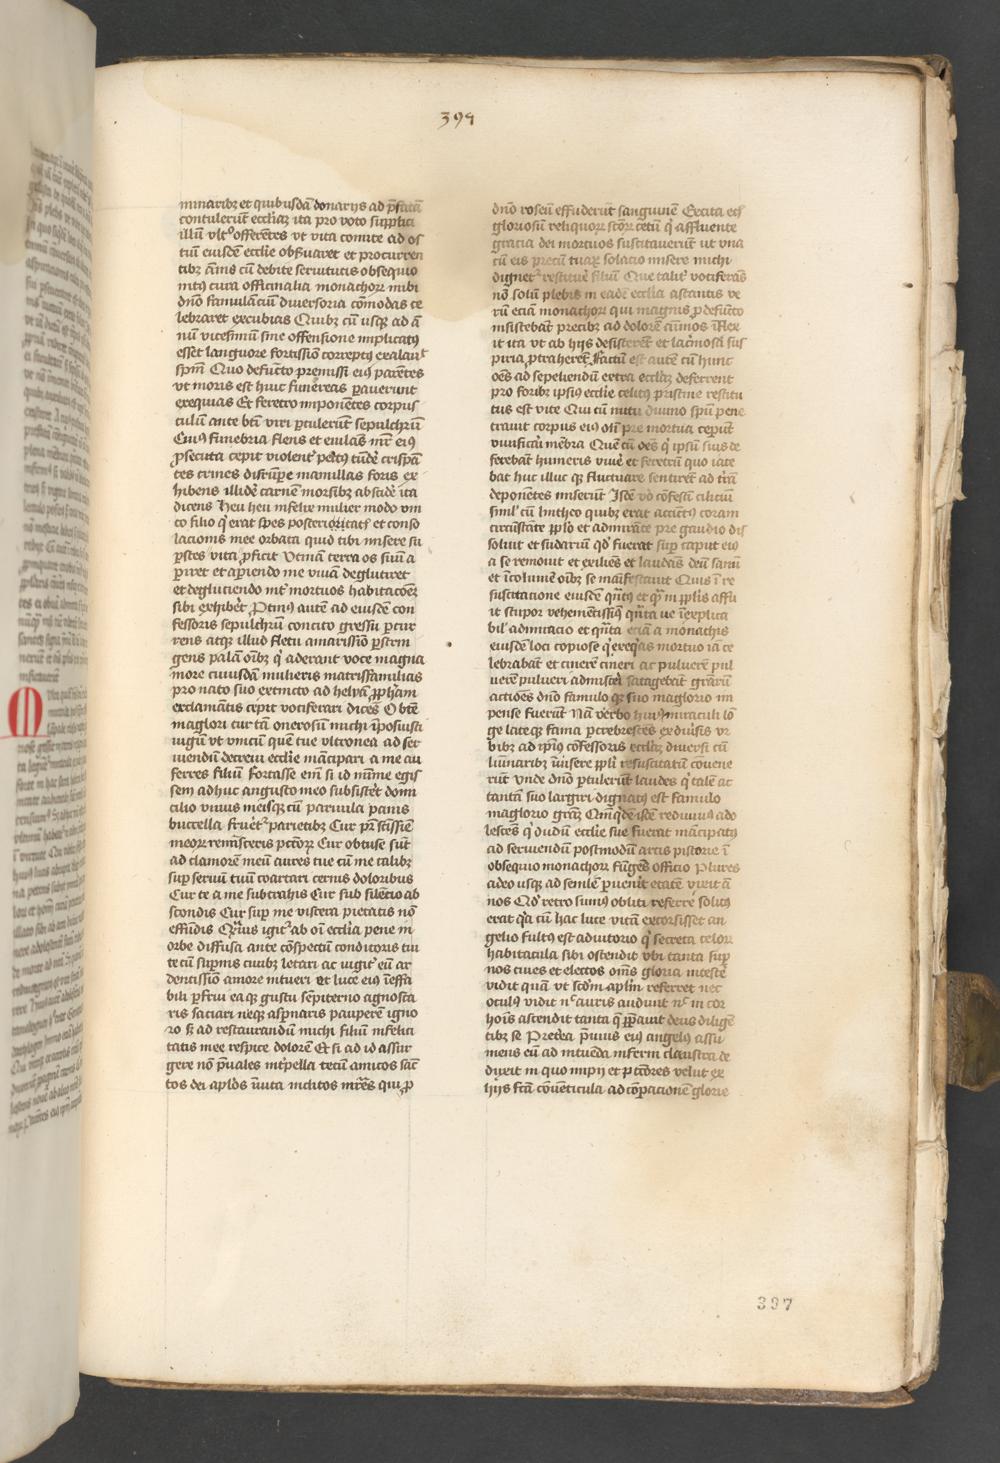 399
minaribꝫ et quibusdā donarijs ad p̄fatā
contulerūt eccliaꝫ ita pro voto supplici
illū vltᵒ offerētes vt vita comite ad os
tiū eiusdē ecclie obẜuaret et procurren
tibꝫ ānis cū debite seruitutis obsequio
intꝰ cura officinalia monachoꝝ inibi
dn̄o famulāciū diuersoria cōmodas ce
lebraret excubias Quibꝫ cū usqꝫ ad ā
nū vicesimū sine offensione implicatꝰ
esset languore fortissiō correptꝰ exalauᵗ
sp̄m Quo defūcto premissi eiꝰ parētes
vt moris est huic funereas pauerunt
exequias Et feretro imponētes corpus
culū ante btī viri ptulerūt sepulchrū
Cuiꝰ funebria flens et eiulās mr̄ eiꝰ
ꝓsecuta cepit violenṫ petꝰ tūdē crispā
tes crines disrūpe mamillas foris ex
hibens illidē carnē morsibꝫ abscidē ita
dicens Heu heu infelix mulier modo vni
co filio q̇ erat spes posterioritatꝭ et conso
lacionis mee orbata quid tibi misere su
pstes vita ꝓficit Vtinā terra os suū a
periret et apiendo me viuā deglutiret
et deglutiendo int̾ mortuos habitacōeꝫ
sibi exhibēt Ꝓtinꝰ autē ad eiusdē con
fessoris sepulchrū concito gressu pcur
rens atqꝫ illud fletu amarissiō pstrin
gens palā oībꝫ q̇ aderant voce magna
more cuiusdā mulieris matrisfamilias
pro nato suo extincto ad helyā ꝓph̄am
exclamātis cepit vociferari dicēs O btē
maglori cur tā onerosū michi īposuisti
iugū vt vnicū quē tue vltronea ad ser
uiendū decreui ecclie mācipari a me au
ferres filiū Fortasse em̄ si id mīme egis
sem adhuc angusto meo subsistēt domi
cilio viuus meisqꝫ cū paruula panis
buccella fruēt̾ parietibꝫ Cur p̄r sc̄issīe
meoꝝ reminisceris pctōꝝ Cur obtuse sūt
ad clamorē meū aures tue cū me talibꝫ
sup seruū tuū coartari cernis doloribus
Cur te a me subtrahis Cur sub silētio ab
scondis Cur sup me viscera pietatis nō
effūdis
orbe diffusa ante cōspectū conditoris tui
te cū supnis ciuibꝫ letari ac vigit̾ eū ar
dentissiō amore intueri et luce eiꝰ īeffa
bili pfrui eaqꝫ gustu sēpiterno agnosta
ris saciari neqꝫ aspnaris pauperē igno
ro sꝫ ad restaurandū michi filiū infelici
tatis mee respice dolorē Et si ad id assur
gere nō p̄uales intpella tecū amicos sāc
tos dei
dn̄o roseū effuderūt sanguinē Excita eciā
gloriosū reliquoꝝ sc̄oꝝ cetū q̇ affluente
gracia dei mortuos suscitauerūt ut vna
cū eis precū tuaꝝ solacio misere michi
dignet̾ restitue filiū Que talit̾ vociferās
nō solū plebis in eadē ecclia astantis ve
rū eciā monachoꝝ qui magnis ꝓ defūcto
insistebāt precibꝫ ad dolorē aīmos īflex
it ita vt ab hijs desisterēt et lac̄mosa sus
piria ꝓtraherēt Factū est autē cū hunc
oēs ad sepeliendū extra eccliaꝫ deferrent
pro foribꝫ ipsiꝰ ecclie celitꝰ pristine restitu
tus est vite Qui cū nutu diuino sp̄u pene
trauit corpus eiꝰ oīa pre mortua ceperūt
viuificari mēbra Quē cū oēs q̇ ipsū suis de
ferebāt humeris viuē et feretrū quo iace
bat huc illuc qꝫ fluctuare sentirēt ad trā
deponētes miserūt Isdē vō cōfestī ciliciū
simil̾ cū lintheo quibꝫ erat accinctꝰ coram
circūstāte pplo et admirāte pre gaudio dis
soluit et sudariū qd̾ fuerat sup caput eiꝰ
a se remouit et exiliēs et laudās deū sanū
et īcolumē oībꝫ se maīfestauit Quis ī re
suscitacione eiusdē
it stupor vehemētissīꝰ q̄nta ue īexplica
bil̾ admiracio et q̄nta eciā a monachis
eiusdē loci copiose q̇ exeq̇as mortuo iā ce
lebrabāt et cinerē cineri ac puluerē pul
uerē pulueri admisceri satagebāt grārū
actiōēs dn̄o famulo qꝫ suo maglorio im
pense fuerūt Nā verbo huiꝰ miraculi lō
ge lateqꝫ fama pcrebrescēs ex diūsis vr
bibꝫ ad ip̄ius cōfessoris eccliaꝫ diuersi cū
luminaribꝫ ūiuerse ppli resuscitatū conuene
rūt vnde dn̄o ptulerūt laudes q̇ talē ac
tantā suo largiri dignatꝰ est famulo
maglorio grāꝫ Qm̄qdē isdē rediuiuꝰ ado
lescēs q̇ dudū ecclie sue fuerat mācipatꝰ
ad seruiendū postmodū artis pistorie ī
obsequio monachoꝝ fūgēs officio Plures
adeo usqꝫ ad senilē puenit etatē vixit ā
nos Qd̾ retro sumꝰ obliti referre solitꝰ
erat q̇a cū hac luce vitā extorsisset an
gelio fultꝰ est adiutorio q̇ secreta celoꝝ
habitacula sibi ostendit vbi tanta sup
nos ciues et electos oīms gloria
vidit quā vt scd̄m ap̄lm referret nec
oculꝰ vidit nᶜ auris audiuit nᶜ in cor
hoīs ascendit tanta q̇ ppauit deus diligē
tibꝫ se Preterea p̄uius eiꝰ angelꝰ assu
mens eū ad intuēda inferni claustra de
duxit in quo impij et pctōres velut ex
hijs fctā cōuēticula ad cōpacionē glorie
397